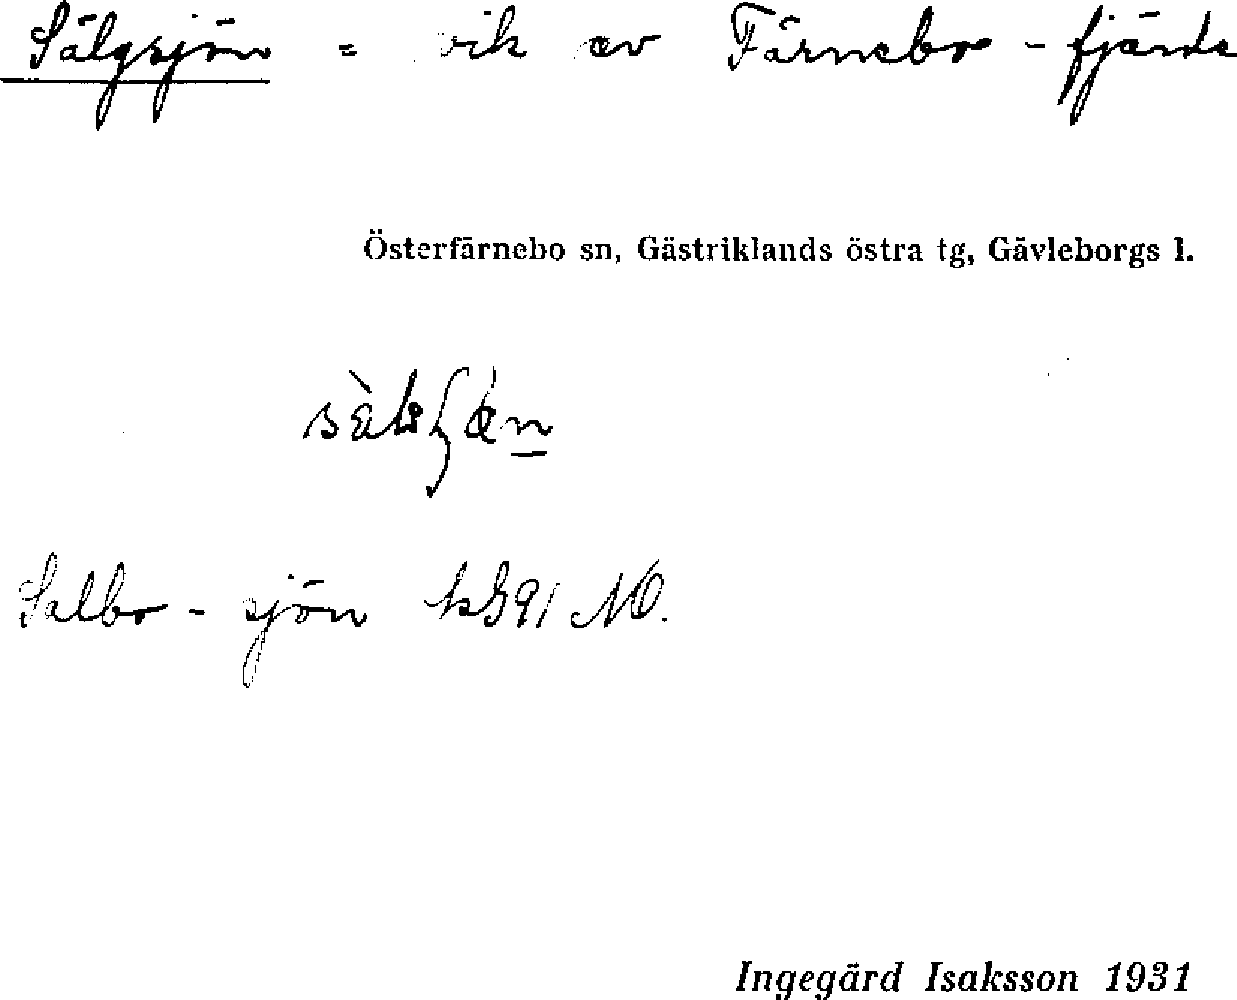 Sälgsjön = vik av Färnebo - fjärde
Österfärnebo sn, Gästriklands östra tg, Gävleborgs l.
Salbo - sjön kG91 NO.
Ingegärd Isaksson 1931